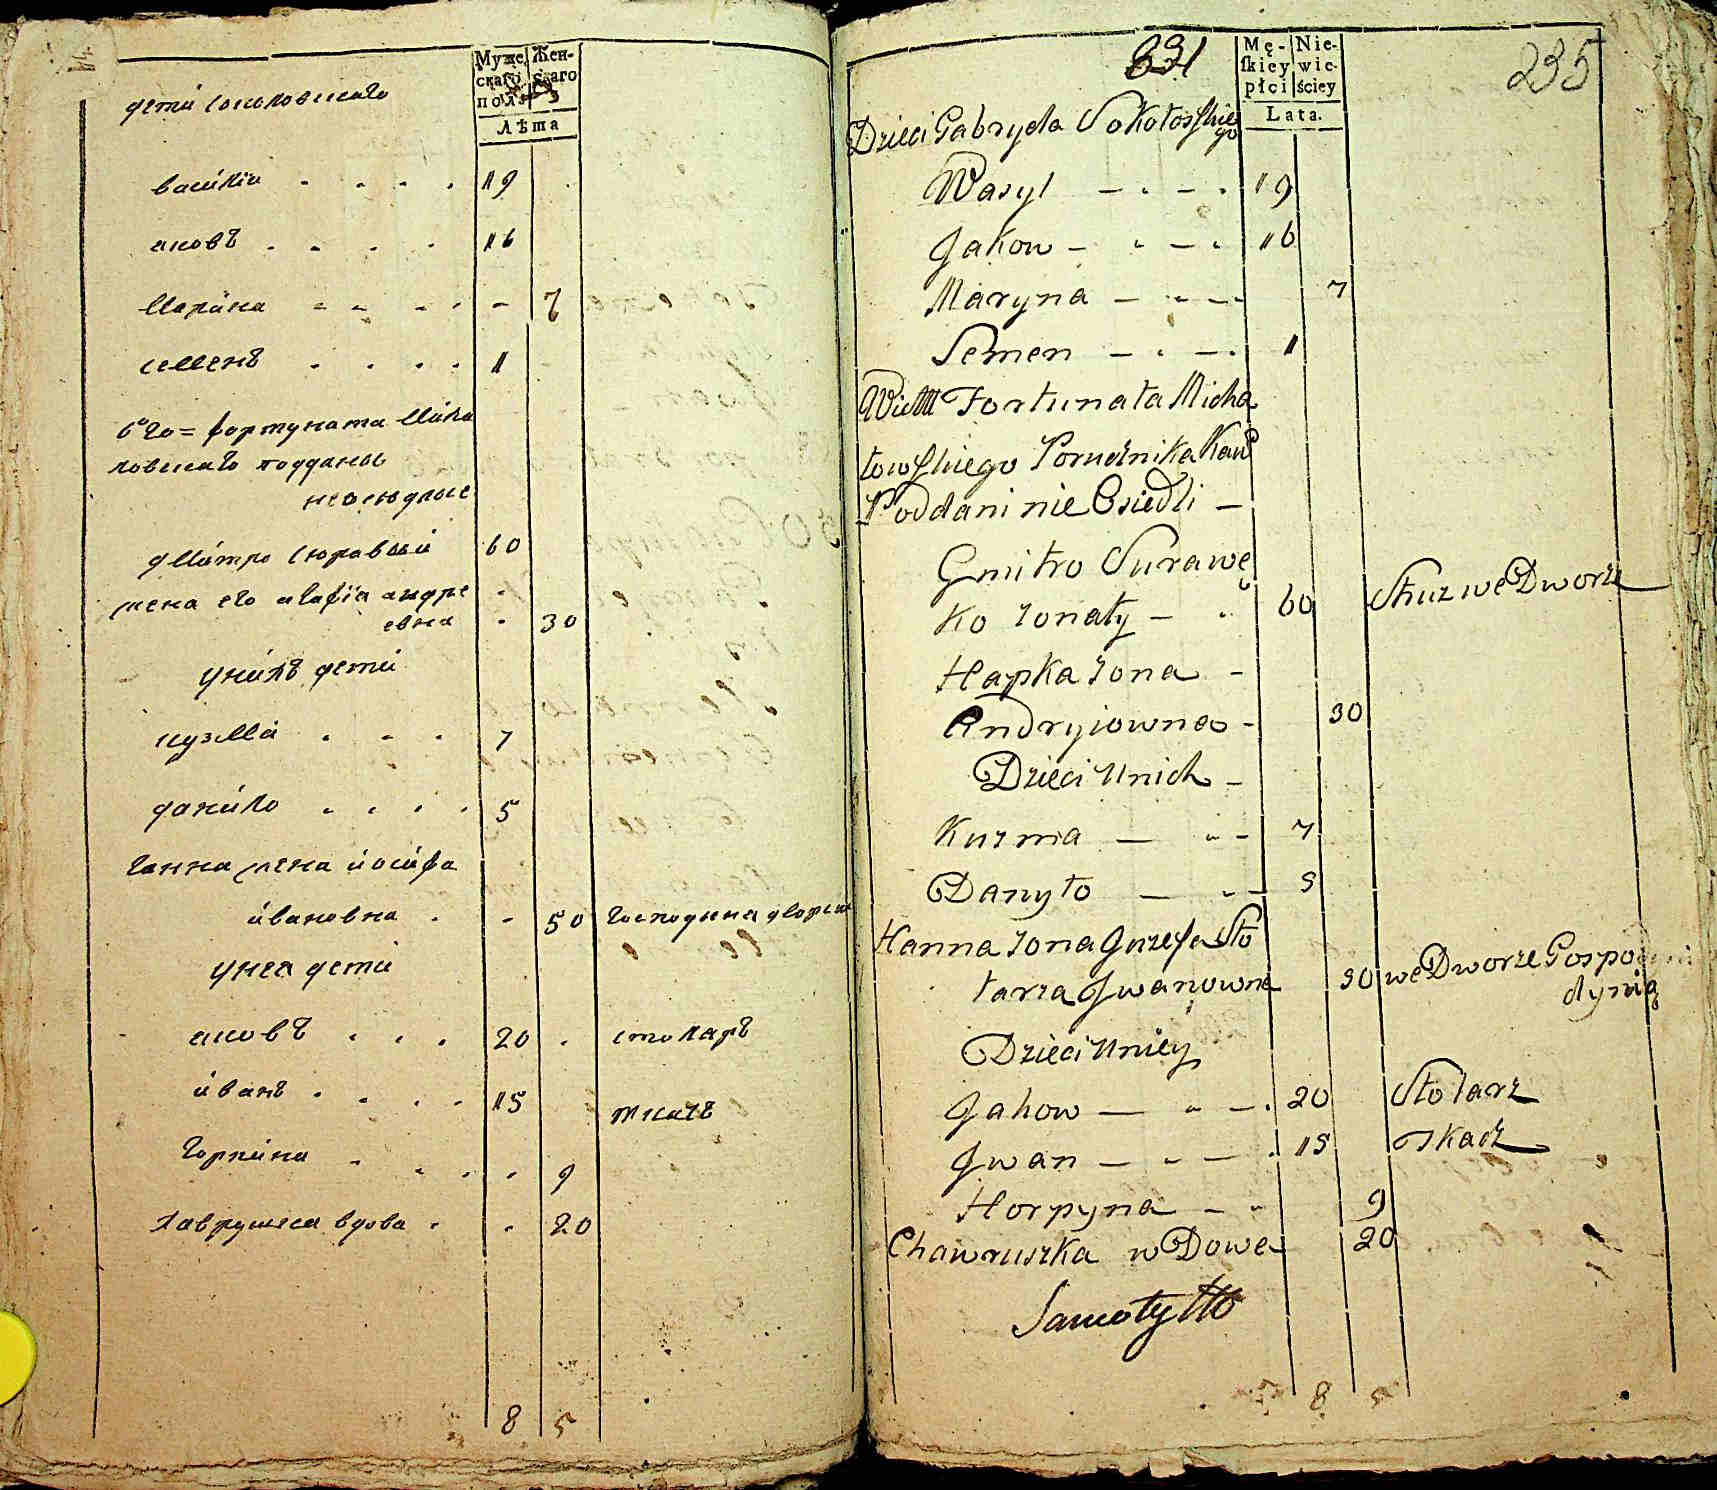 Муже-
скаго
полъ
Жен-
скаго
Лѣта
дети соколовскаго
василiи 19
яковъ 16
Марина - 7
семенъ 1
его = фортуната Миха
ловскаго подданые
неоседлые
дмитро сюравый 60
жена его агафiя андре
евна 30
унихъ дети
кузма 7
данило 5
ганна жена иосифа
ивановна - 50 господиня дворная
унея дети
яковъ 20 столяръ
иванъ 15
ткачъ
горпина 9
хаврушка вдова 20
8 5
831
235
Mę-
skiey
płci
Nie-
wie-
ściey
Lata.
Dzieci Gabryela Sokołoskie
go
Wasyl 19
Jakow 16
Maryna 7
Semen 1
Fortunata Micha
łowskiego Porucznika Kaw
Poddani nie Osiedli
Gmitro Surawe
Ko żonaty 60 Służ we Dworze
Hapka żona
Andryiowna 30
Dzieci Unich
Kuzma 7
Danyło 5
Hanna żona Juzefa Sto
larza Jwanowna 50 we Dworze Gospo
dynią
Dzieci Uniey
Jakow 20 Stolarz
Jwan 15 Tkacz
Horpyna 9
Chawruszka wDowa 20
8 5